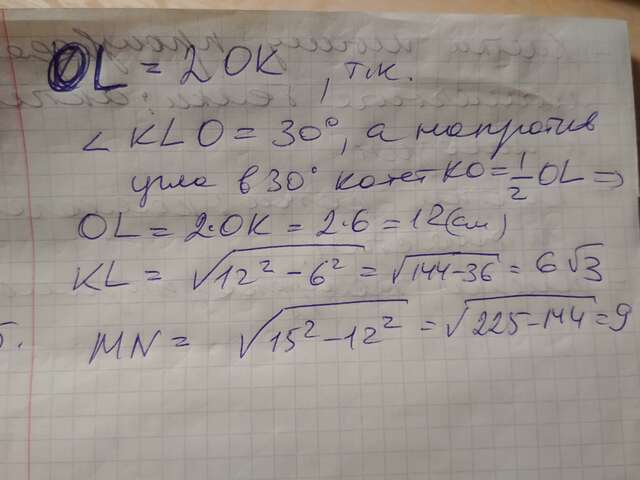 OL = 2OK, т.к.
∠KLO = 30°, а напротив
угла в 30° катет KO = 1/2 OL ⇒
OL = 2·OK = 2·6 = 12(см)
KL = √(12² - 6²) = √(144-36) = 6√3
5. MN = √(15² - 12²) = √(225-144) = 9